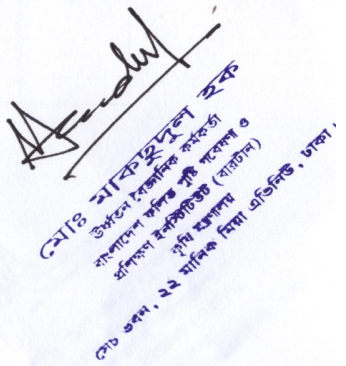 মোঃ মাকছুদুল হক
উর্ধ্বতন বৈজ্ঞানিক কর্মকর্তা
বাংলাদেশ ফলিত পুষ্টি গবেষণা ও
প্রশিক্ষণ ইনস্টিটিউট (বারটান)
কৃষি মন্ত্রণালয়
সেচ ভবন, ২২ মানিক মিয়া এভিনিউ, ঢাকা.